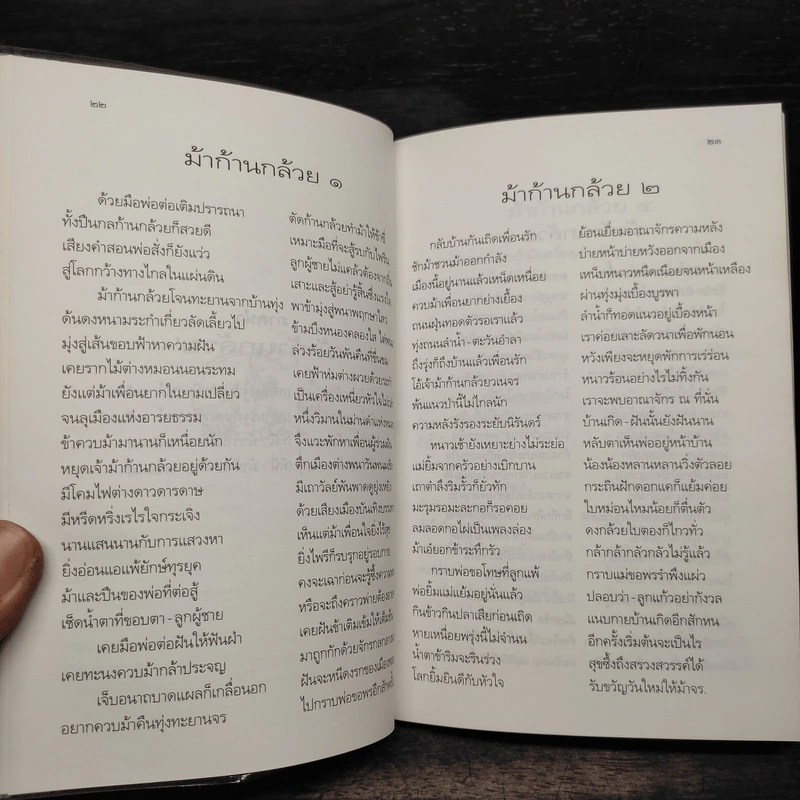 ๒๒
ม้าก้านกล้วย ๑
ด้วยมือพ่อต่อเติมปรารถนา
ตัดก้านกล้วยทำม้าให้
ทั้งปืนกลก้านกล้วยก็สวยดี
เหมาะมือที่จะสู้รบกับไพรินทร์
เสียงคำสอนพ่อสั่งก็ยังแว่ว
ลูกผู้ชายไม่แคล้วต้อง
สู่โลกกว้างทางไกลในแผ่นดิน
เสาะและสู้อย่ารู้สิ้นซึ่งแรงใจ
ม้าก้านกล้วยโจนทะยานจากบ้านทุ่ง
พาข้ามุ่งสู่พนาพฤกษาไสว
ต้นดงหนามระกำเกี่ยวลัดเลี้ยวไป
ข้ามบึงหนองคลองใส
มุ่งสู่เส้นขอบฟ้าหาความฝัน
ล่วงร้อยวันพันคืนที่ขื่นขม
เคยรากไม้ต่างหมอนนอนระทม
เคยฟ้าห่มต่างผวยด้วย
ยังแต่ม้าเพื่อนยากในยามเปลี่ยว
เป็นเครื่องเหนี่ยวหัวใจ
จนลุเมืองแห่งอารยธรรม
หนึ่งวิมานในม่านดำ
ข้าควบม้ามานานก็เหนื่อยนัก
จึงแวะพักหาเพื่อนผู้ร่วมฝัน
หยุดเจ้าม้าก้านกล้วยอยู่ด้วยกัน
ตึกเมืองต่างพนาวัน
มีโคมไฟต่างดาวดารดาษ
มีเถาวัลย์พันพาดดูยุ่งเหยิง
มีหรีดหริ่งเรไรใจกระเจิง
ด้วยเสียงเมืองบันเทิง
นานแสนนานกับการแสวงหา
เห็นแต่ม้าเพื่อนใจ
ยิ่งอ่อนแอแพ้ยักษ์ทุรยุค
ยิ่งไพรีก็รบรุกอยู่รอบกาย
ม้าและปืนของพ่อที่ต่อสู้
คงจะเฉาก่อนจะรู้ซึ้งความหมาย
เช็ดน้ำตาที่ขอบตา - ลูกผู้ชาย
หรือจะถึงคราวพ่าย
เคยมือพ่อต่อฝันให้ฟันฝ่า
เคยฝันข้าเติมเข้มให้
เคยทะนงควบม้ากล้าประจญ
มาถูกกักด้วยจักรกล
เจ็บอนาถบาดแผลก็เกลื่อนอก
ฝันจะหนีดงรกของเมือง
อยากควบม้าคืนทุ่งทะยานจร
ไปกราบพ่อขอพรอีกสักครั้ง
๒๓
ม้าก้านกล้วย ๒
กลับบ้านกันเถิดเพื่อนรัก
ย้อนเยี่ยมอาณาจักรความหลัง
ชักม้าชวนม้าออกกำลัง
บ่ายหน้าบ่ายหวังออกจากเมือง
เมืองนี้อยู่นานแล้วเหน็ดเหนื่อย
เหน็บหนาวหนืดเนือยจนหน้าเหลือง
ควบม้าเพื่อนยากย่างเยื้อง
ผ่านทุ่งมุ่งเบื้องบูรพา
ถนนฝุ่นทอดตัวรอเราแล้ว
ลำน้ำก็ทอดแนวอยู่เบื้องหน้า
ทุ่งถนนลำน้ำ - ตะวันอำลา
เราค่อยเลาะลัดวนาเพื่อพักนอน
ถึงรุ่งก็ถึงบ้านแล้วเพื่อนรัก
หวังเพียงจะหยุดพักการเร่ร่อน
โอ้เจ้าม้าก้านกล้วยวเนจร
หนาวร้อนอย่างไรไม่ทิ้งกัน
พ้นแนวป่านี้ไม่ไกลนัก
เราจะพบอาณาจักร ณ ที่นั่น
ความหลังรังรองระยับนิรันดร์
บ้านเกิด - ฝันนั้นยังฝันนาน
หนาวเช้ายังเหยาะย่างไม่ระย่อ
หลับตาเห็นพ่ออยู่หน้าบ้าน
แม่ยิ้มจากครัวอย่างเบิกบาน
น้องน้องหลานหลานวิ่งตัวลอย
เถาตำลึงริมรั้วก็ยั่วทัก
กระถินฝักดอกแคก็แย้มค่อย
มะรุมรอมะละกอก็รอคอย
ใบหม่อนไหมน้อยก็ตื่นตัว
ลมลอดกอไผ่เป็นเพลงล่อง
ดงกล้วยใบตองก็ไกวทั่ว
ม้าเอ๋ยอกข้าระทึกรัว
กล้ากล้ากลัวกลัวไม่รู้แล้ว
กราบพ่อขอโทษที่ลูกแพ้
กราบแม่ขอพรรำพึงแผ่ว
พ่อยิ้มแม่แย้มอยู่นั่นแล้ว
ปลอบว่า - ลูกแก้วอย่ากังวล
กินข้าวกินปลาเสียก่อนเถิด
แนบกายบ้านเกิดอีกสักหน
หายเหนื่อยพรุ่งนี้ไม่จำนน
อีกครั้งเริ่มต้นจะเป็นไร
น้ำตาข้าริมจะรินร่วง
สุขซึ้งถึงสรวงสวรรค์ได้
โลกยิ้มยินดีกับหัวใจ
รับขวัญวันใหม่ให้ม้าจร.